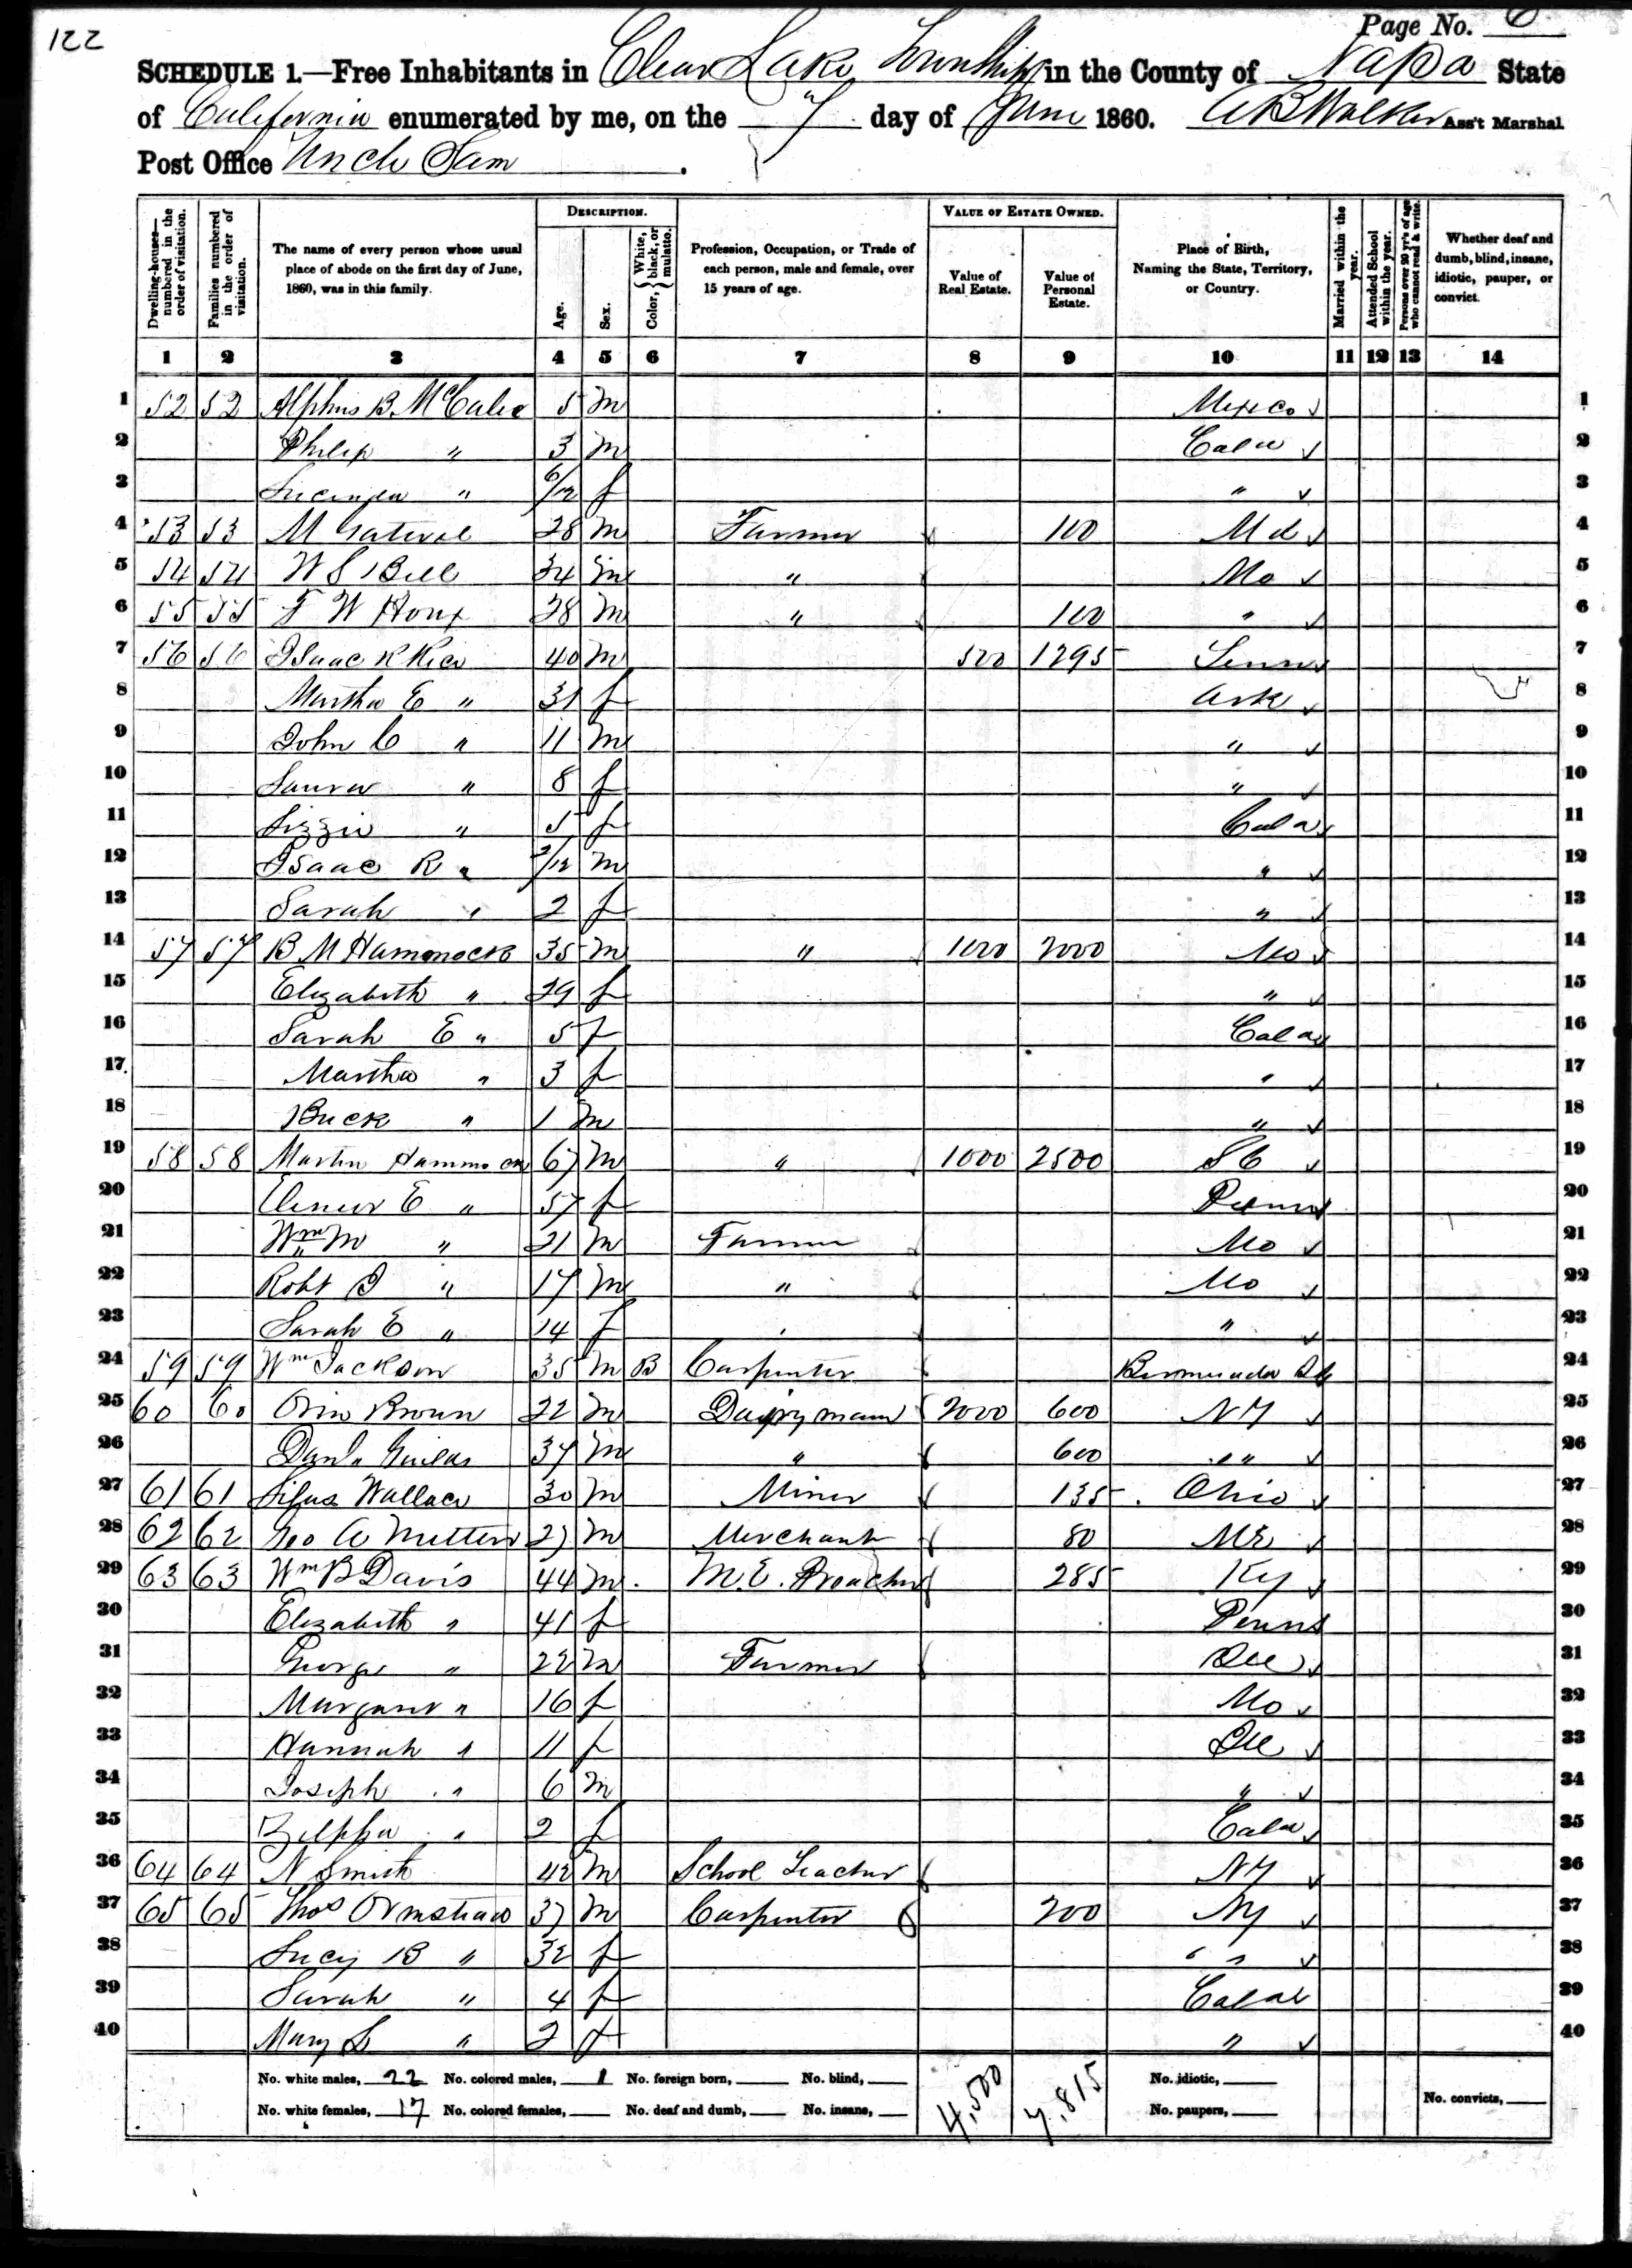 122
Page No. 6
SCHEDULE 1.—Free Inhabitants in Clear Lake Township in the County of Napa State
of California enumerated by me, on the 7 day of June 1860. A B Walker Ass't Marshal.
Post Office Uncle Sam.
Dwelling-houses—numbered in the order of visitation. Families numbered in the order of visitation. The name of every person whose usual place of abode on the first day of June, 1860, was in this family. DESCRIPTION. Age. Sex. Color, { White, black, or mulatto. Profession, Occupation, or Trade of each person, male and female, over 15 years of age. VALUE OF ESTATE OWNED. Value of Real Estate. Value of Personal Estate. Place of Birth, Naming the State, Territory, or Country. Married within the year. Attended School within the year. Persons over 20 y'rs of age who cannot read & write. Whether deaf and dumb, blind, insane, idiotic, pauper, or convict.
1 2 3 4 5 6 7 8 9 10 11 12 13 14
1 52 52 Alphus B. McCabe 5 m Mexico 1
2 Philip " 3 m Cala 2
3 " 6/12 f " 3
4 53 53 M 28 m Farmer 100 Md 4
5 54 54 W S Bell 34 m " Mo 5
6 55 55 F W Houx 28 m " 100 " 6
7 56 56 Isaac R Rice 40 m 500 1295 Tenn 7
8 Martha E " 31 f Ark 8
9 John C " 11 m " 9
10 Laura " 8 f " 10
11 Lizzie " 5 f Cala 11
12 Isaac R " 2/12 m " 12
13 Sarah " 2 f " 13
14 57 57 B M Hammock 35 m " 1000 2000 Mo 14
15 Elizabeth " 29 f " 15
16 Sarah E " 5 f Cala 16
17 Martha " 3 f " 17
18 Buck " 1 m " 18
19 58 58 Martin Hammock 67 m " 1000 2500 S C 19
20 E " 57 f 20
21 Wm M " 21 m Farmer Mo 21
22 Robt J " 17 m " Mo 22
23 Sarah E " 14 f " 23
24 59 59 Wm Jackson 35 m B Carpenter Bermuda 24
25 60 60 Orin Brown 22 m Dairyman 2000 600 NY 25
26 37 m " 600 " " 26
27 61 61 Wallace 30 m Miner 135 Ohio 27
28 62 62 Geo A 27 m Merchant 80 Me 28
29 63 63 Wm B Davis 44 m M.E. Preacher 285 Ky 29
30 Elizabeth " 41 f Penn 30
31 George " 22 m Farmer Ill 31
32 Margaret " 16 f Mo 32
33 Hannah " 11 f Ill 33
34 Joseph " 6 m " 34
35 Zilpha " 2 f Cala 35
36 64 64 N Smith 42 m School Teacher NY 36
37 65 65 Thos 37 m Carpenter 200 NY 37
38 Lucy B " 32 f " " 38
39 Sarah " 4 f Cala 39
40 Mary L " 2 f " 40
No. white males, 22 No. colored males, 1 No. foreign born, No. blind, 4,500 7,815 No. idiotic,
No. white females, 17 No. colored females, No. deaf and dumb, No. insane, No. paupers, No. convicts,